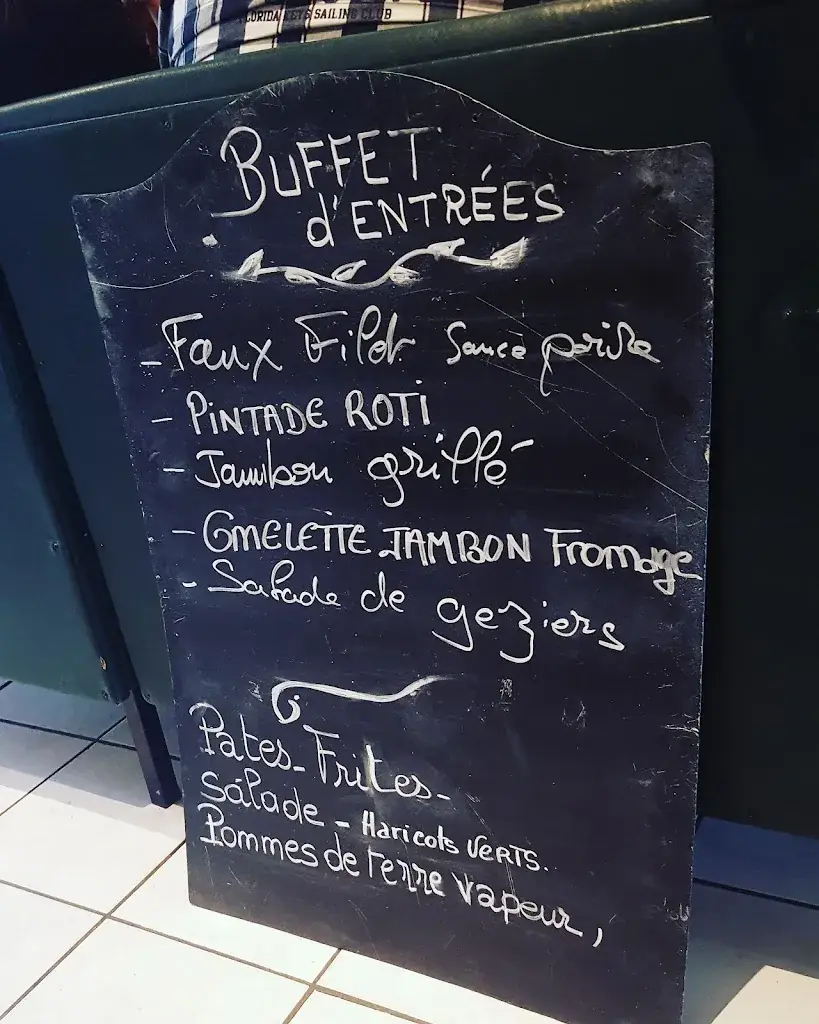 FLORIDA KEYS SAILING CLUB
BUFFET
d'ENTRÉES
- Faux Filet Sauce poivre
- PINTADE ROTI
- Jambon grillé
- OMELETTE JAMBON Fromage
- Salade de geziers
Pates - Frites -
salade - Haricots VERTS.
Pommes de terre vapeur,